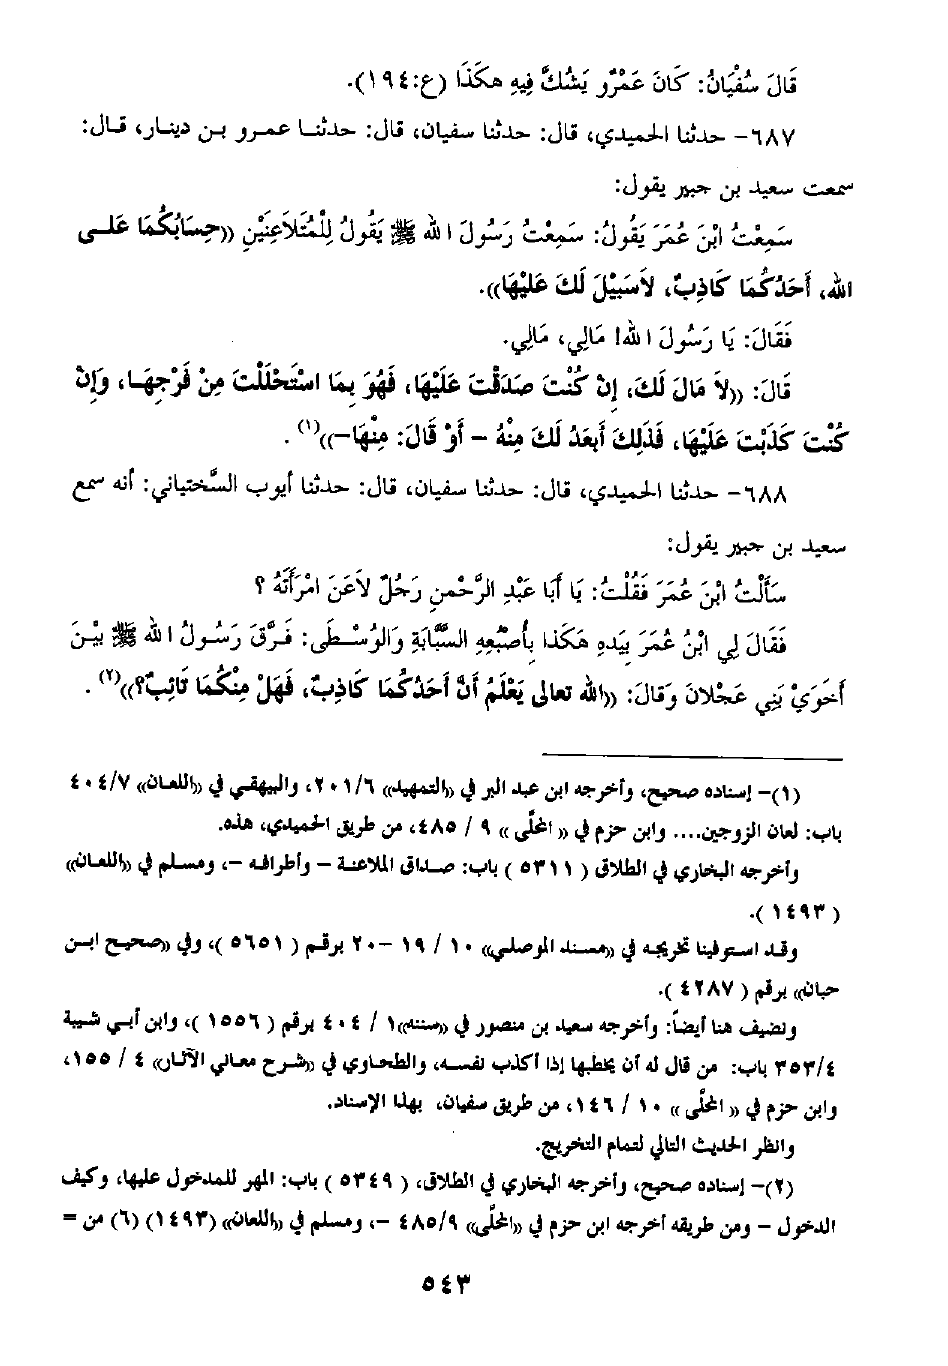 قَالَ سُفْيَانُ: كَانَ عَمْرٌو يَشُكُّ فِيهِ هكَذَا (ع:١٩٤).
٦٨٧- حدثنا الحميدي، قال: حدثنا سفيان، قال: حدثنا عمرو بن دينار، قال:
سمعت سعيد بن جبير يقول:
سَمِعْتُ ابْنَ عُمَرَ يَقُولُ: سَمِعْتُ رَسُولَ الله ﷺ يَقُولُ لِلْمُتَلاَعِنَيْنِ ((حِسَابُكُمَا عَلَى
الله، أَحَدُكُمَا كَاذِبٌ، لاَسَبِيْلَ لَكَ عَلَيْهَا)).
فَقَالَ: يَا رَسُولَ الله! مَالِي، مَالِي.
قَالَ: ((لاَ مَالَ لَكَ، إِنْ كُنْتَ صَدَقْتَ عَلَيْهَا، فَهُوَ بِمَا اسْتَحْلَلْتَ مِنْ فَرْجِهَا، وَإِنْ
كُنْتَ كَذَبْتَ عَلَيْهَا، فَذَلِكَ أَبْعَدُ لَكَ مِنْهُ - أَوْ قَالَ: مِنْهَا-))(١) .
٦٨٨- حدثنا الحميدي، قال: حدثنا سفيان، قال: حدثنا أيوب السَّختياني: أنه سمع
سعيد بن جبير يقول:
سَأَلْتُ ابْنَ عُمَرَ فَقُلْتُ: يَا أَبَا عَبْدِ الرَّحْمنِ رَجُلٌ لاَعَنَ امْرَأَتَهُ ؟
فَقَالَ لِي ابْنُ عُمَرَ بِيَدِهِ هكَذَا بِأُصْبُعِهِ السَّبَّابَةِ وَالْوُسْطَى: فَرَّقَ رَسُولُ الله ﷺ بَيْنَ
أَخَوَيْ بَنِي عَجْلانَ وَقَالَ: ((الله تعالى يَعْلَمُ أَنَّ أَحَدَكُمَا كَاذِبٌ، فَهَلْ مِنْكُمَا تَائِبٌ؟))(٢) .
(١)- إسناده صحيح، وأخرجه ابن عبد البر في ((التمهيد)) ٢٠١/٦، والبيهقي في ((اللعان)) ٤٠٤/٧
باب: لعان الزوجين.... وابن حزم في (( المحلَّى )) ٩ / ٤٨٥، من طريق الحميدي، هذه.
وأخرجه البخاري في الطلاق ( ٥٣١١ ) باب: صداق الملاعنة - وأطرافه -، ومسلم في ((اللعان))
( ١٤٩٣ ).
وقد استوفينا تخريجه في ((مسند الموصلي)) ١٠ / ١٩ -٢٠ برقم ( ٥٦٥١ )، وفي ((صحيح ابن
حبان)) برقم ( ٤٢٨٧ ).
ونضيف هنا أيضاً: وأخرجه سعيد بن منصور في ((سننه))١ / ٤٠٤ برقم ( ١٥٥٦ )، وابن أبي شيبة
٣٥٣/٤ باب: من قال له أن يخطبها إذا أكذب نفسه، والطحاوي في ((شرح معاني الآثار)) ٤ / ١٥٥،
وابن حزم في (( المحلَّى )) ١٠ / ١٤٦، من طريق سفيان، بهذا الإسناد.
وانظر الحديث التالي لتمام التخريج.
(٢)- إسناده صحيح، وأخرجه البخاري في الطلاق، ( ٥٣٤٩ ) باب: المهر للمدخول عليها، وكيف
الدخول - ومن طريقه أخرجه ابن حزم في ((المحلَّى)) ٤٨٥/٩ -، ومسلم في ((اللعان)) (١٤٩٣) (٦) من =
٥٤٣